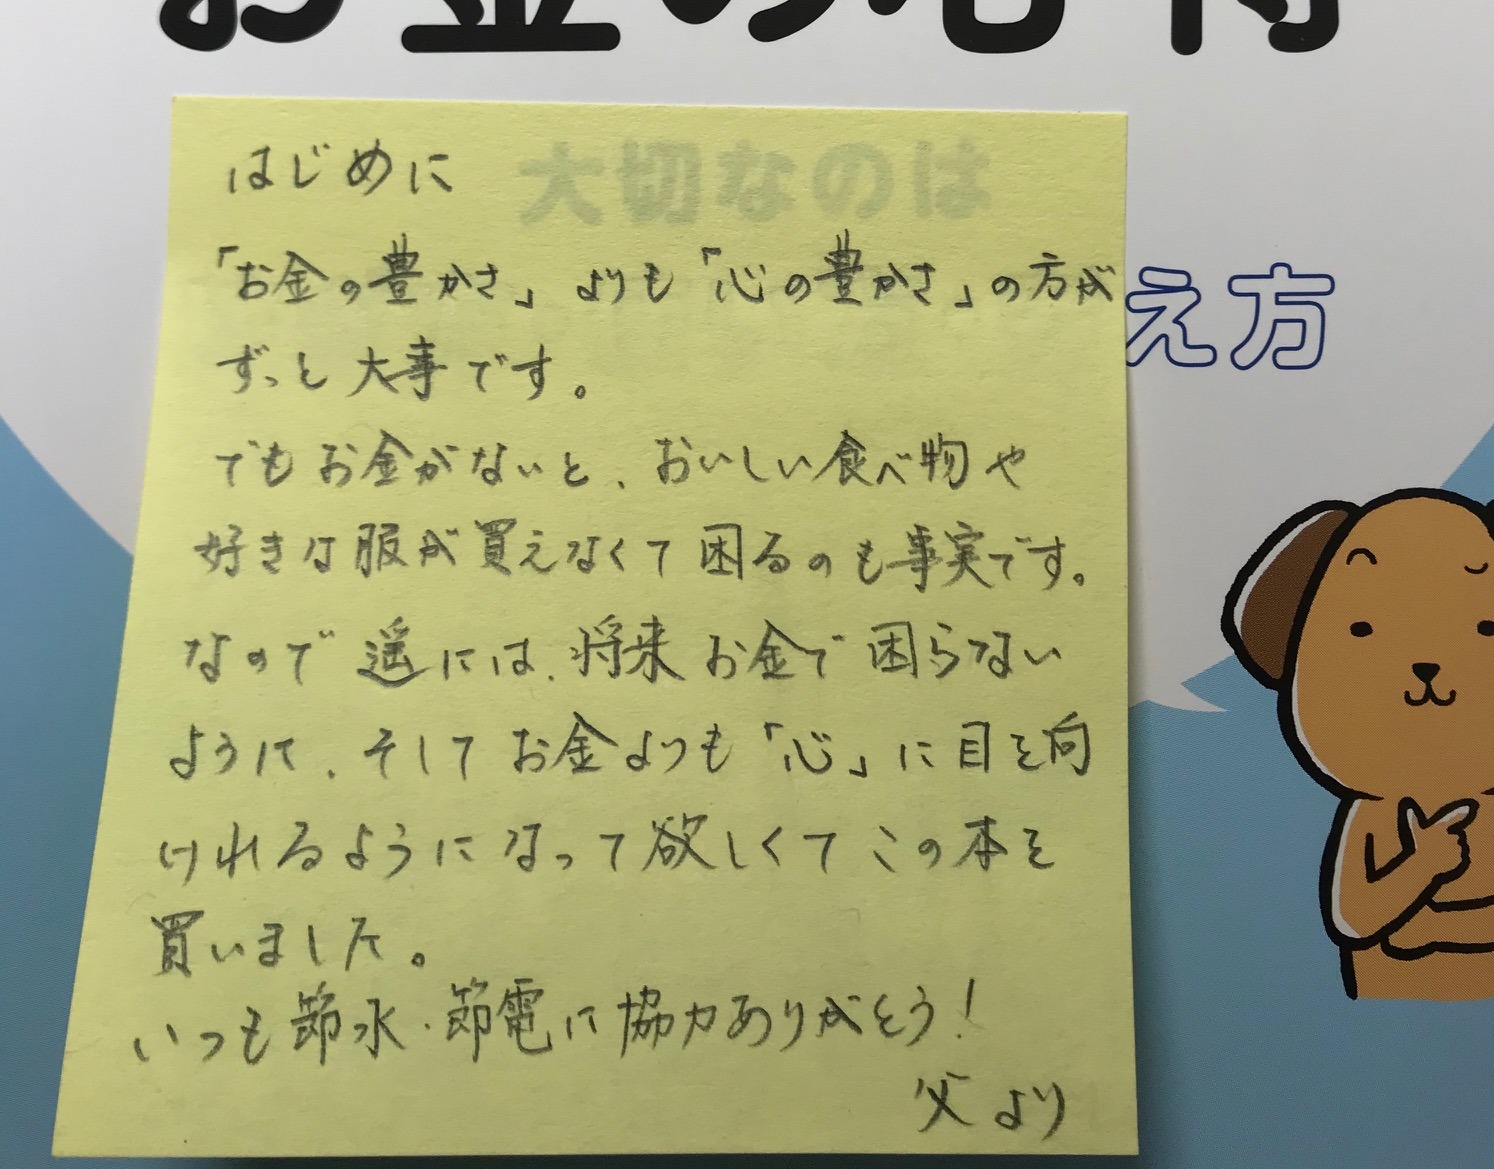 お金の心得
はじめに
大切なのは
「お金の豊かさ」よりも「心の豊かさ」の方が
え方
ずっと大事です。
でもお金がないと、おいしい食べ物や
好きな服が買えなくて困るのも事実です。
なので遥には、将来お金で困らない
ように、そしてお金よりも「心」に目を向
けれるようになって欲しくてこの本を
買いました。
いつも節水・節電に協力ありがとう!
父より